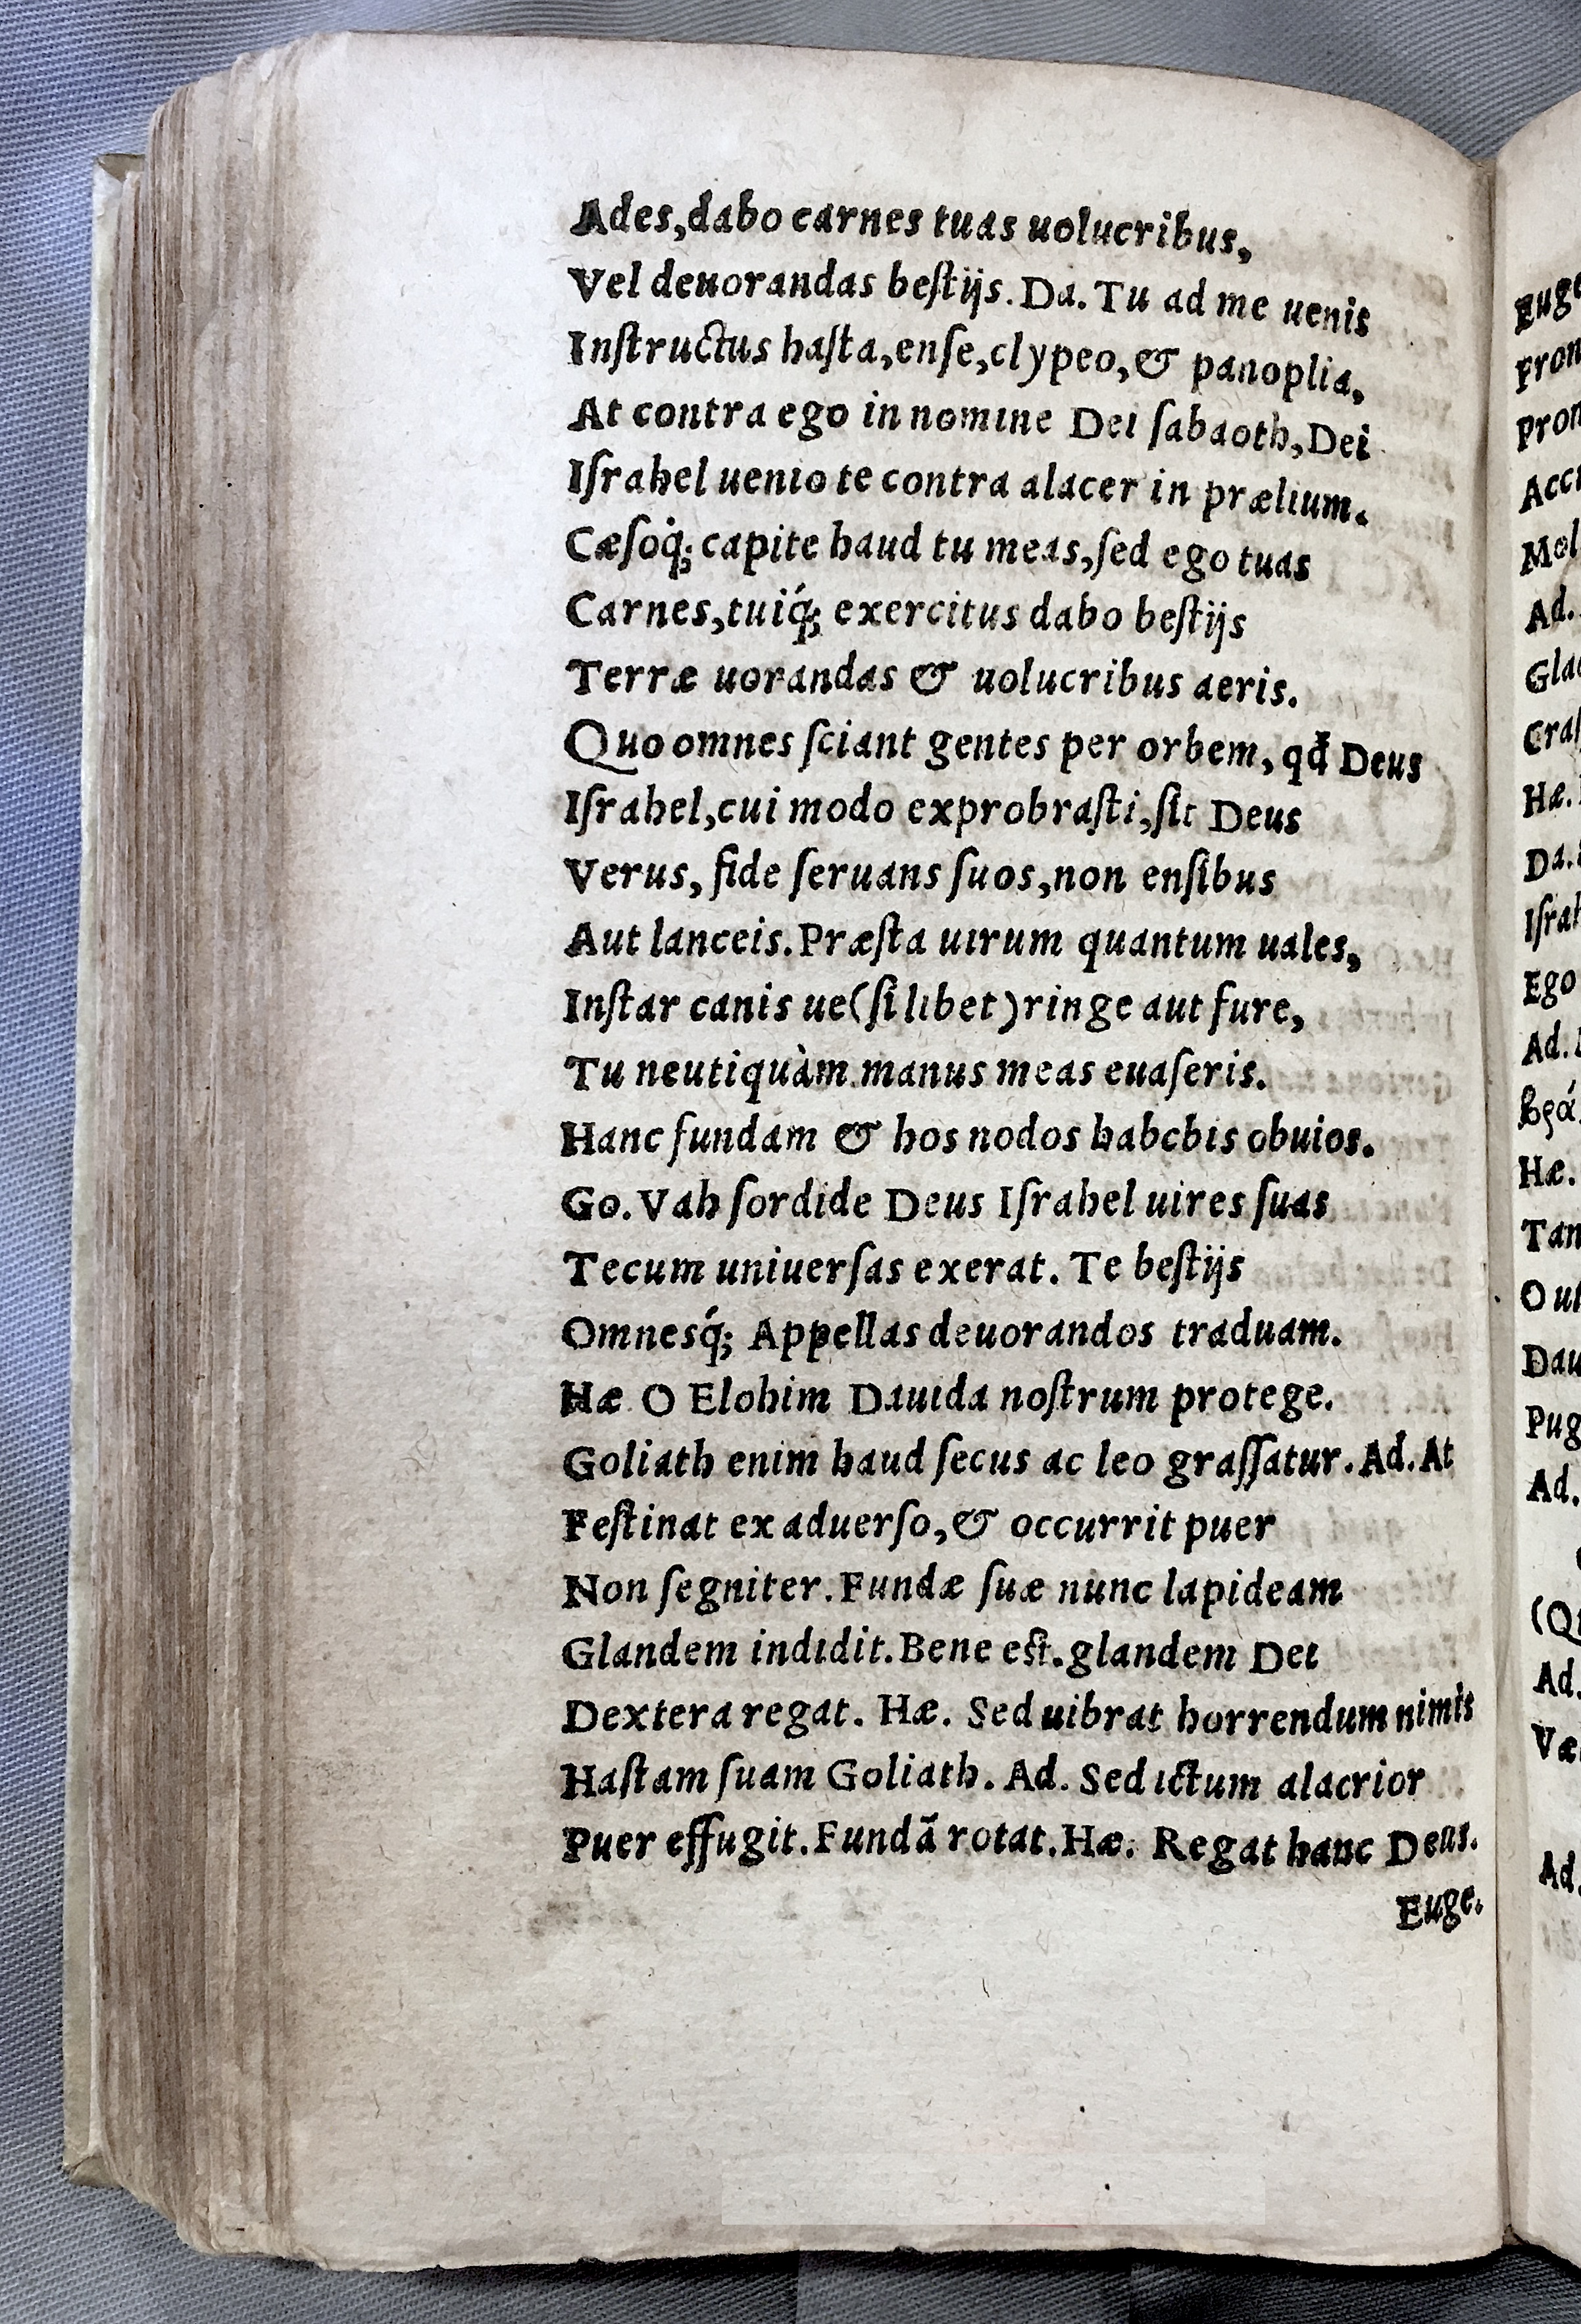 Ades,dabo carnes tuas uolucribus,
Vel deuorandas beſtijs. Da. Tu ad me uenis
Inſtructus haſta,enſe,clypeo,& panoplia,
At contra ego in nomine Dei ſabaoth,Dei
Iſrahel uenio te contra alacer in prælium.
Cæſoq́; capite haud tu meas,ſed ego tuas
Carnes,tuiq́; exercitus dabo beſtijs
Terræ uorandas & uolucribus aeris.
Quo omnes ſciant gentes per orbem, qđ Deus
Iſrahel,cui modo exprobraſti,ſit Deus
Verus, fide ſeruans ſuos,non enſibus
Aut lanceis.Præſta uirum quantum uales,
Inſtar canis ue(ſi libet)ringe aut fure,
Tu neutiquàm manus meas euaſeris.
Hanc fundam & hos nodos habebis obuios.
Go. Vah ſordide Deus Iſrahel uires ſuas
Tecum uniuerſas exerat. Te beſtijs
Omnesq́; Appellas deuorandos traduam.
Hæ O Elohim Dauida noſtrum protege.
Goliath enim haud ſecus ac leo graſſatur. Ad. At
Feſtinat ex aduerſo,& occurrit puer
Non ſegniter. Fundæ ſuæ nunc lapideam
Glandem indidit. Bene eſt. glandem Dei
Dextera regat. Hæ. Sed uibrat horrendum nimis
Haſtam ſuam Goliath. Ad. Sed ictum alacrior
Puer effugit. Fundã rotat. Hæ. Regat hanc Deus.
Euge.
Euge
Ad.
Hæ.
Da.
Iſrah
Ego
Ad.
βρά
Hæ.
Ad.
Ad.
Ad.